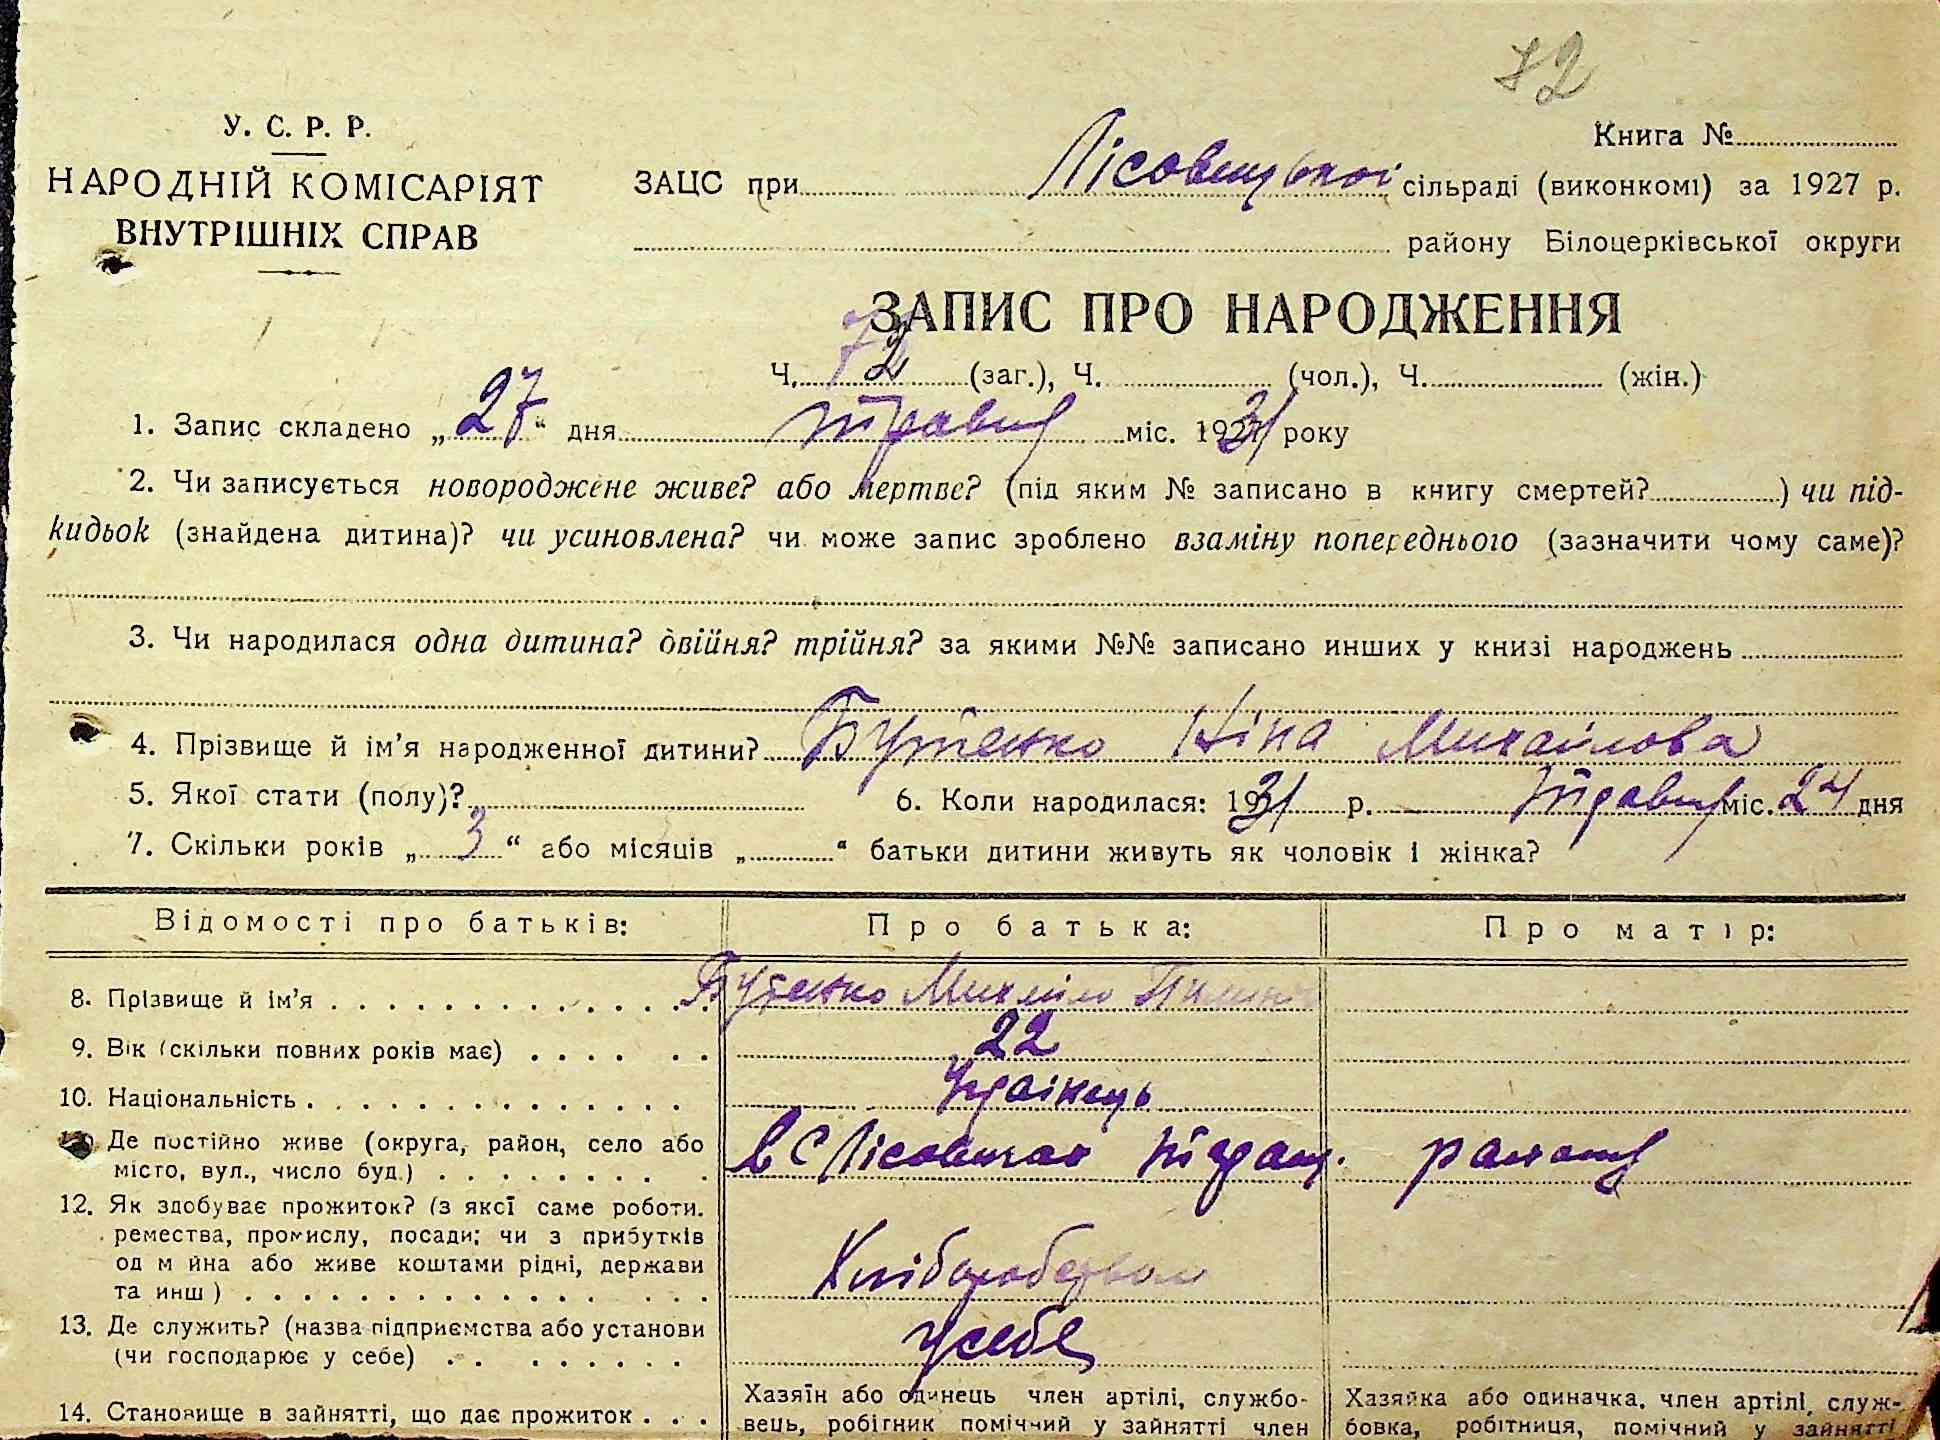 72
У. С. Р. Р.
НАРОДНІЙ КОМІСАРІЯТ
ВНУТРІШНІХ СПРАВ
Книга №
ЗАЦС при Лісовецької сільраді (виконкомі) за 1927 р.
району Білоцерківської округи
ЗАПИС ПРО НАРОДЖЕННЯ
Ч. 72 (заг.), Ч. (чол.), Ч. (жін.)
1. Запис складено „27“ дня травня міс. 1931 року
2. Чи записується новороджене живе? або мертве? (під яким № записано в книгу смертей?) чи під-
кидьок (знайдена дитина)? чи усиновлена? чи може запис зроблено взаміну попереднього (зазначити чому саме)?
3. Чи народилася одна дитина? двійня? трійня? за якими №№ записано инших у книзі народжень
4. Прізвище й ім’я народженної дитини? Бутенко Ніна Михайлова
5. Якої стати (полу)? 6. Коли народилася: 1931 р. травня міс. 24 дня
7. Скільки років „3“ або місяців „“ батьки дитини живуть як чоловік і жінка?
Відомості про батьків: Про батька: Про матір:
8. Прізвище й ім’я Бутенко Михайло
9. Вік (скільки повних років має) 22
10. Національність Українець
Де постійно живе (округа, район, село або
місто, вул., число буд.) в с Лісовичах Таращ. району
12. Як здобуває прожиток? (з якої саме роботи.
ремества, промислу, посади; чи з прибутків
од м йна або живе коштами рідні, держави
та инш) Хліборобством
13. Де служить? (назва підприємства або установи
(чи господарює у себе) у себе
14. Становище в зайнятті, що дає прожиток
Хазяїн або одинець член артілі, службо-
вець, робігник помічний у зайнятті член
Хазяйка або одиначка, член артілі, служ-
бовка, робітниця, помічний у зайнятті